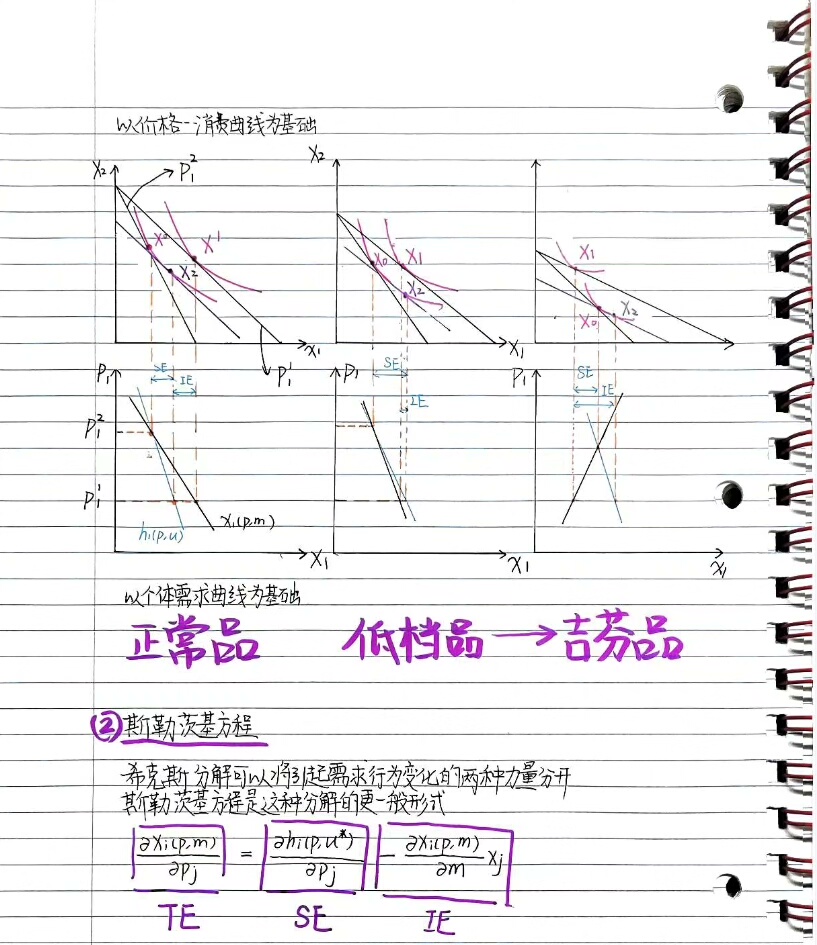 以价格-消费曲线为基础
X₂ P₁² X₂
X⁰ X¹ X₀ X₁ X₁
X₂ X₂ X₀ X₂
X₁ P₁¹ X₁
P₁ SE IE P₁ SE IE P₁ SE IE
P₁²
P₁¹
h₁(p,u) x₁(p,m)
X₁ X₁ X₁
以个体需求曲线为基础
正常品 低档品→吉芬品
② 斯勒茨基方程
希克斯分解可以将引起需求行为变化的两种力量分开
斯勒茨基方程是这种分解的更一般形式
∂xᵢ(p,m)/∂pⱼ = ∂hᵢ(p,u*)/∂pⱼ - ∂xᵢ(p,m)/∂m xⱼ
TE SE IE